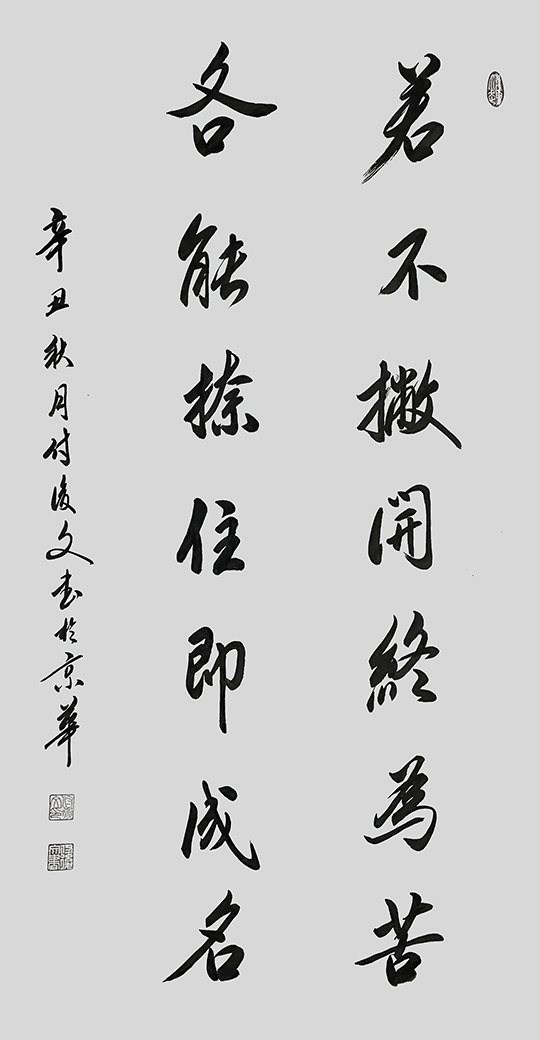 若不撇開終為苦
各能捺住即成名
辛丑秋月付後文書於京華